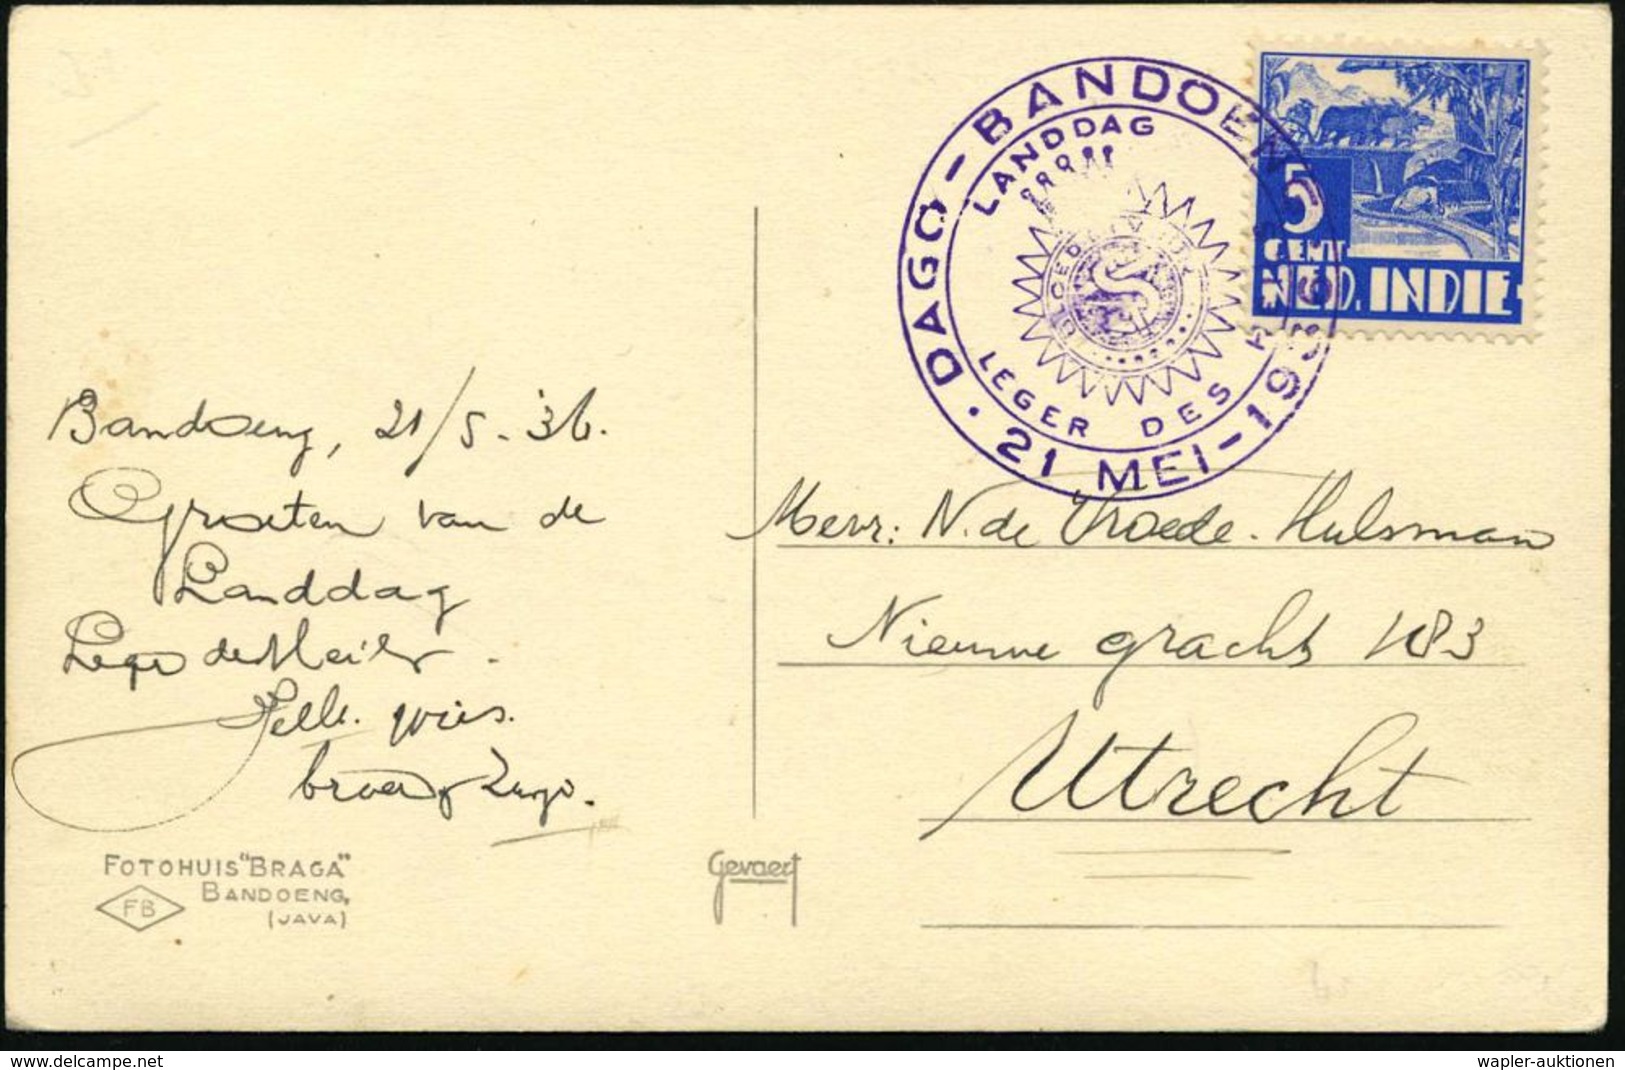 DAGO - BANDOENG
LANDDAG
LEGER DES
21 MEI - 193
5
CENT
NED. INDIE
Bandoeng, 21/5.36.
Groeten van de
Landdag
Leger des Heils.
Jelle.
broer
Mevr: N. de Vroede-Hulsman
Nieuwe gracht 183
Utrecht
FOTOHUIS "BRAGA"
BANDOENG,
(JAVA)
FB
Gevaert
www.delcampe.net
wapler-auktionen